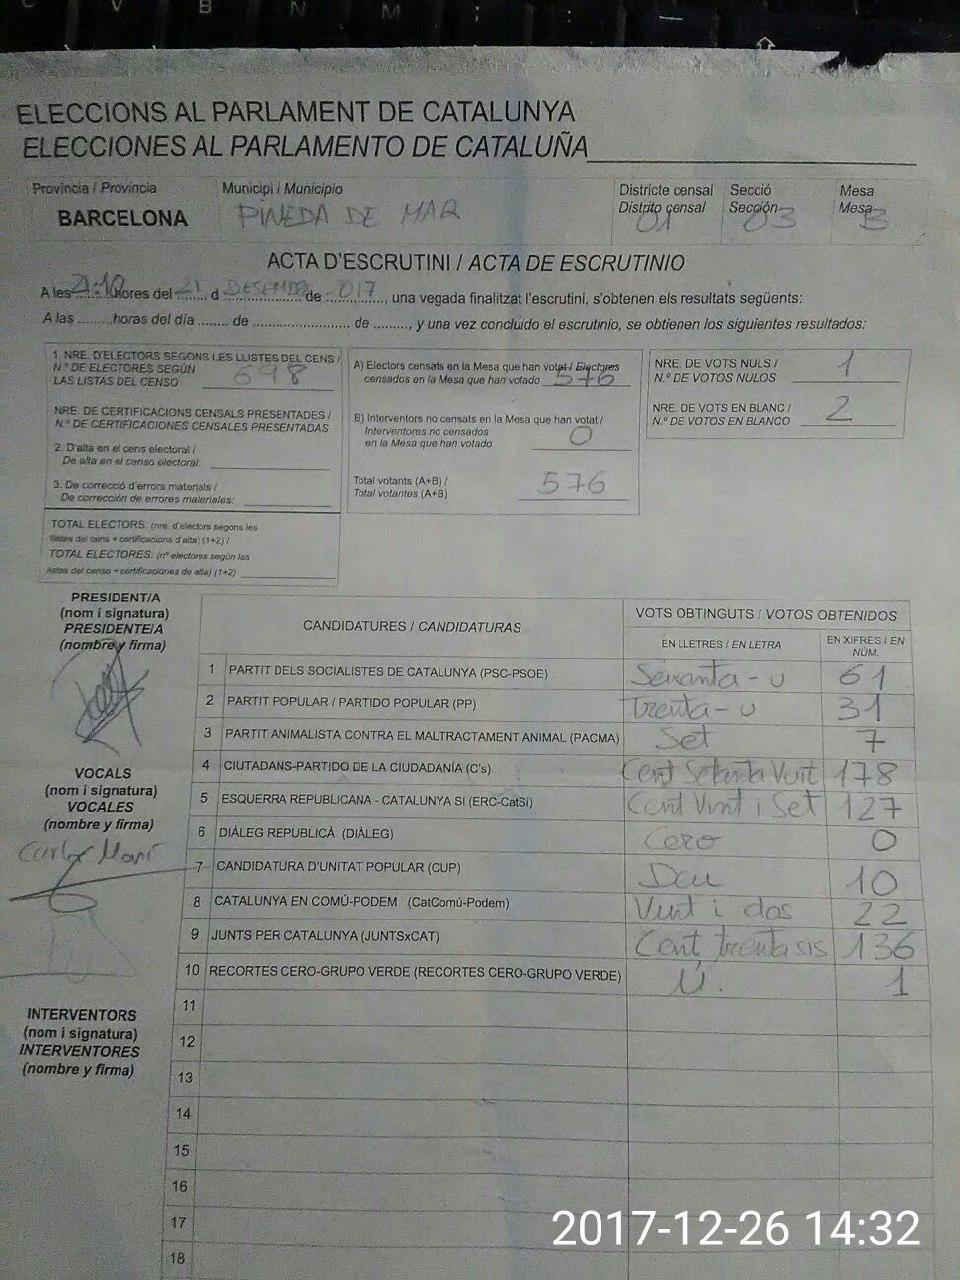 C V B N M ; : —
ELECCIONS AL PARLAMENT DE CATALUNYA
ELECCIONES AL PARLAMENTO DE CATALUÑA
Província / Provincia Municipi / Municipio Districte censal Secció Mesa
Distrito censal Sección Mesa
BARCELONA PINEDA DE MAR 01 03 B
ACTA D'ESCRUTINI / ACTA DE ESCRUTINIO
A les 21:10 hores del 21 d DESEMBRE de 2017, una vegada finalitzat l'escrutini, s'obtenen els resultats següents:
A las ........horas del día ....... de ....................... de ........, y una vez concluido el escrutinio, se obtienen los siguientes resultados:
1. NRE. D'ELECTORS SEGONS LES LLISTES DEL CENS /
N.º DE ELECTORES SEGÚN
LAS LISTAS DEL CENSO 698
NRE. DE CERTIFICACIONS CENSALS PRESENTADES /
N.º DE CERTIFICACIONES CENSALES PRESENTADAS
2. D'alta en el cens electoral /
De alta en el censo electoral:
3. De correcció d'errors materials /
De corrección de errores materiales:
TOTAL ELECTORS: (nre. d'electors segons les
llistes del cens + certificacions d'alta) (1+2) /
TOTAL ELECTORES: (nº electores según las
listas del censo + certificaciones de alta) (1+2)
A) Electors censats en la Mesa que han votat / Electores
censados en la Mesa que han votado 576
B) Interventors no censats en la Mesa que han votat /
Interventores no censados
en la Mesa que han votado 0
Total votants (A+B) /
Total votantes (A+B) 576
NRE. DE VOTS NULS /
N.º DE VOTOS NULOS 1
NRE. DE VOTS EN BLANC /
N.º DE VOTOS EN BLANCO 2
PRESIDENT/A
(nom i signatura)
PRESIDENTE/A
(nombre y firma)
VOCALS
(nom i signatura)
VOCALES
(nombre y firma)
INTERVENTORS
(nom i signatura)
INTERVENTORES
(nombre y firma)
CANDIDATURES / CANDIDATURAS VOTS OBTINGUTS / VOTOS OBTENIDOS
EN LLETRES / EN LETRA EN XIFRES / EN NÚM.
1 PARTIT DELS SOCIALISTES DE CATALUNYA (PSC-PSOE) Seixanta-u 61
2 PARTIT POPULAR / PARTIDO POPULAR (PP) Trenta-u 31
3 PARTIT ANIMALISTA CONTRA EL MALTRACTAMENT ANIMAL (PACMA) Set 7
4 CIUTADANS-PARTIDO DE LA CIUDADANÍA (C's) Cent Setanta Vuit 178
5 ESQUERRA REPUBLICANA - CATALUNYA SÍ (ERC-CatSí) Cent Vint i Set 127
6 DIÀLEG REPUBLICÀ (DIÀLEG) Cero 0
7 CANDIDATURA D'UNITAT POPULAR (CUP) Deu 10
8 CATALUNYA EN COMÚ-PODEM (CatComú-Podem) Vint i dos 22
9 JUNTS PER CATALUNYA (JUNTSxCAT) Cent trenta sis 136
10 RECORTES CERO-GRUPO VERDE (RECORTES CERO-GRUPO VERDE) U. 1
11
12
13
14
15
16
17
18
2017-12-26 14:32